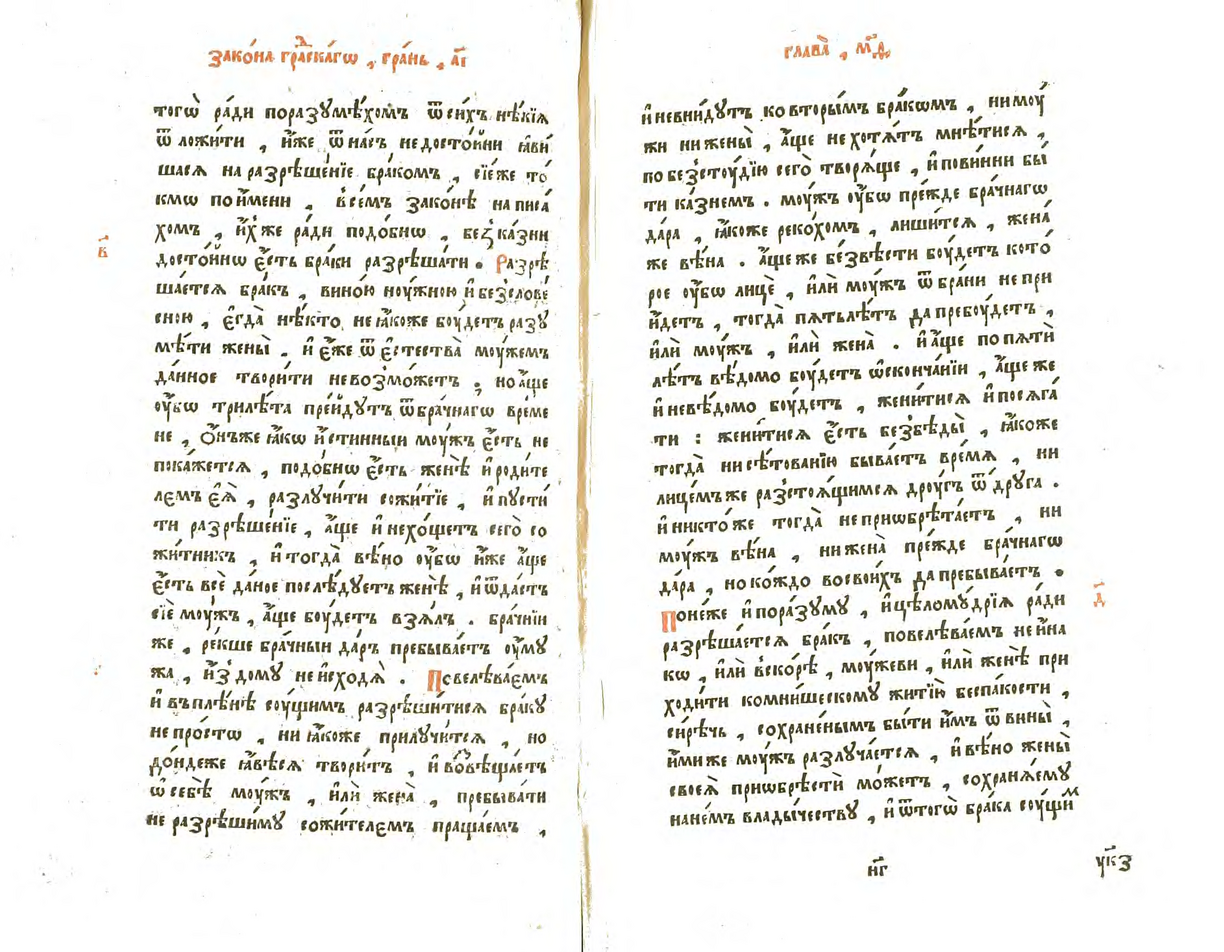 зако́на гра́дскагѡ , гра́нь , а҃і
тогѡ̀ ра́ди поразумѣ́хомъ ѿ си́хъ нѣ́кїѧ
ѿ ложи́ти , и҆́же ѿ на́съ недосто́йни ꙗ҆ви́
шасѧ на разрѣше́нїе бра́комъ , сїе́же то́
кмѡ по и҆́мени , в̾се́мъ зако́нѣ написа́
хомъ , и҆́хже ра́ди подо́бнѡ , без̾ ка́зни
досто́йнѡ є҆́сть бра́ки разрѣша́ти . Разрѣ
в҃
ша́етсѧ бра́къ , вино́ю ноу́жною и҆ безслове́
сною , є҆гда̀ нѣ́кто не ꙗ҆́коже боу́детъ разу
мѣ́ти жены̀ . и҆ є҆́же ѿ є҆стества̀ моу́жемъ
да́нное твори́ти невозмо́жетъ , но а҆́ще
оу҆́бѡ трилѣ́та пре́йдутъ ѿ бра́чнагѡ вре́ме
не , ѻ҆́нъже ꙗ҆́кѡ и҆́стинныи моу́жъ є҆́сть не
пока́жетсѧ , подо́бнѡ є҆́сть женѣ̀ и҆ роди́те
лемъ є҆ѧ̀ , разлучи́ти сожи́тїе , и҆ пусти́
ти разрѣше́нїе , а҆́ще и҆ нехо́щетъ сего̀ со
жи́тникъ , и҆ тогда̀ вѣ́но оу҆́бѡ и҆́же а҆́ще
є҆́сть всѐ да́ное послѣ́дуетъ женѣ̀ , и҆ ѿда́стъ
сїѐ моу́жъ , а҆́ще боу́детъ взѧ́лъ . бра́чнїи
же , ре́кше бра́чныи да́ръ пребыва́етъ оу҆ му́
жа , и҆з̾ до́му не и҆сходѧ̀ . Повелѣва́емъ
и҆ въ плѣ́нѣ соу́щимъ разрѣши́тисѧ бра́ку
не про́стѡ , ни ꙗ҆́коже прилучи́тсѧ , но
до́ндеже ꙗ҆́вѣсѧ твори́тъ , и҆ во́звѣща́етъ
ѡ҆ себѣ̀ моу́жъ , и҆лѝ жена̀ , пребыва́ти
не разрѣ́шиму сожи́телемъ праща́емъ ,
глава̀ , м҃ѳ
и҆ невни́дутъ ко вторы́мъ бра́кѡмъ , ни моу́
жи ни жены̀ , а҆́ще не хотѧ́тъ мнѣ́тисѧ ,
по безстоу́дїю сего̀ творѧ́ще , и҆ пови́нни бы́
ти ка́знемъ . моу́жъ оу҆́бѡ пре́жде бра́чнагѡ
да́ра , ꙗ҆́коже реко́хомъ , лиши́тсѧ , жена́
же вѣ́на . а҆́ще же без̾вѣсти боу́детъ кото́
рое оу҆́бѡ лицѐ , и҆лѝ моу́жъ ѿ бра́ни не прі
и҆́детъ , тогда̀ пѧтьлѣ́тъ да пребоу́детъ ,
и҆лѝ моу́жъ , и҆лѝ жена̀ . и҆ а҆́ще по пѧтѝ
лѣ́тъ вѣ́домо боу́детъ ѡ҆ сконча́нїи , а҆́ще же
и҆ невѣ́домо боу́детъ , жени́тисѧ и҆ посѧга́
ти : жени́тисѧ є҆́сть без̾бѣды̀ , ꙗ҆́коже
тогда̀ ни сѣ́тованїю быва́етъ вре́мѧ , ни
лице́мъ же раз̾стоѧ́щимсѧ дроу́гъ ѿ дру́га .
и҆ никто́же тогда̀ не прїѡбрѣта́етъ , ни
моу́жъ вѣ́на , ни жена̀ пре́жде бра́чнагѡ
да́ра , но ко́ждо во свои́хъ да пребыва́етъ .
Поне́же и҆ по ра́зуму , и҆ цѣлому́дрїѧ ра́ди
д҃
разрѣша́етсѧ бра́къ , повелѣва́емъ не и҆на
кѡ , и҆лѝ вско́рѣ , моу́жеви , и҆лѝ женѣ̀ при
ходи́ти ко мни́шескому житїю̀ беспа́кости ,
си́рѣчь , сохране́нымъ бы́ти и҆̀мъ ѿ вины̀ ,
и҆́миже моу́жъ разлуча́етсѧ , и҆ вѣ́но жены̀
своеѧ̀ прїѡбрѣстѝ мо́жетъ , сохранѧ́ему
на не́мъ влады́честву , и҆ ѿ того̀ бра́ка соу́щим
н҃г
ук҃з